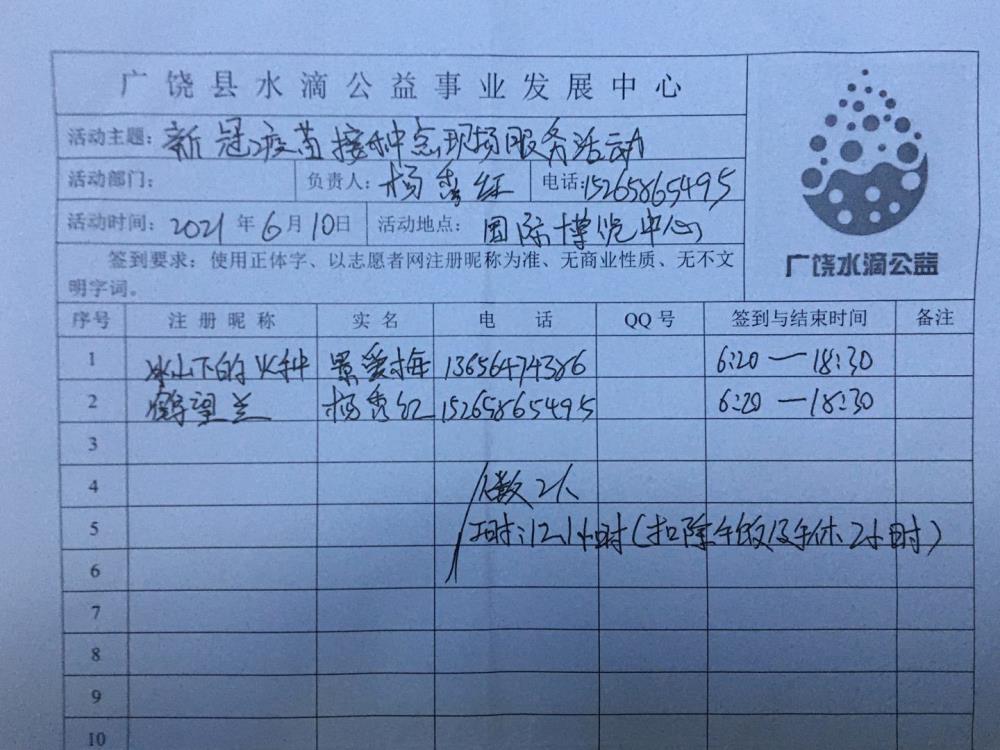 广饶县水滴公益事业发展中心
活动主题：新冠疫苗接种点现场服务活动
活动部门： 负责人：杨秀红 电话：15265865495
活动时间：2021年6月10日 活动地点：国际博览中心
签到要求：使用正体字、以志愿者网注册昵称为准、无商业性质、无不文
明字词。
广饶水滴公益
序号 注册昵称 实名 电话 QQ号 签到与结束时间 备注
1 冰山下的火种 景爱梅 13656474386 6:20—18:30
2 鹤望兰 杨秀红 15265865495 6:20—18:30
3
4 人数2人
5 工时:12小时(扣除午饭及午休2小时)
6
7
8
9
10